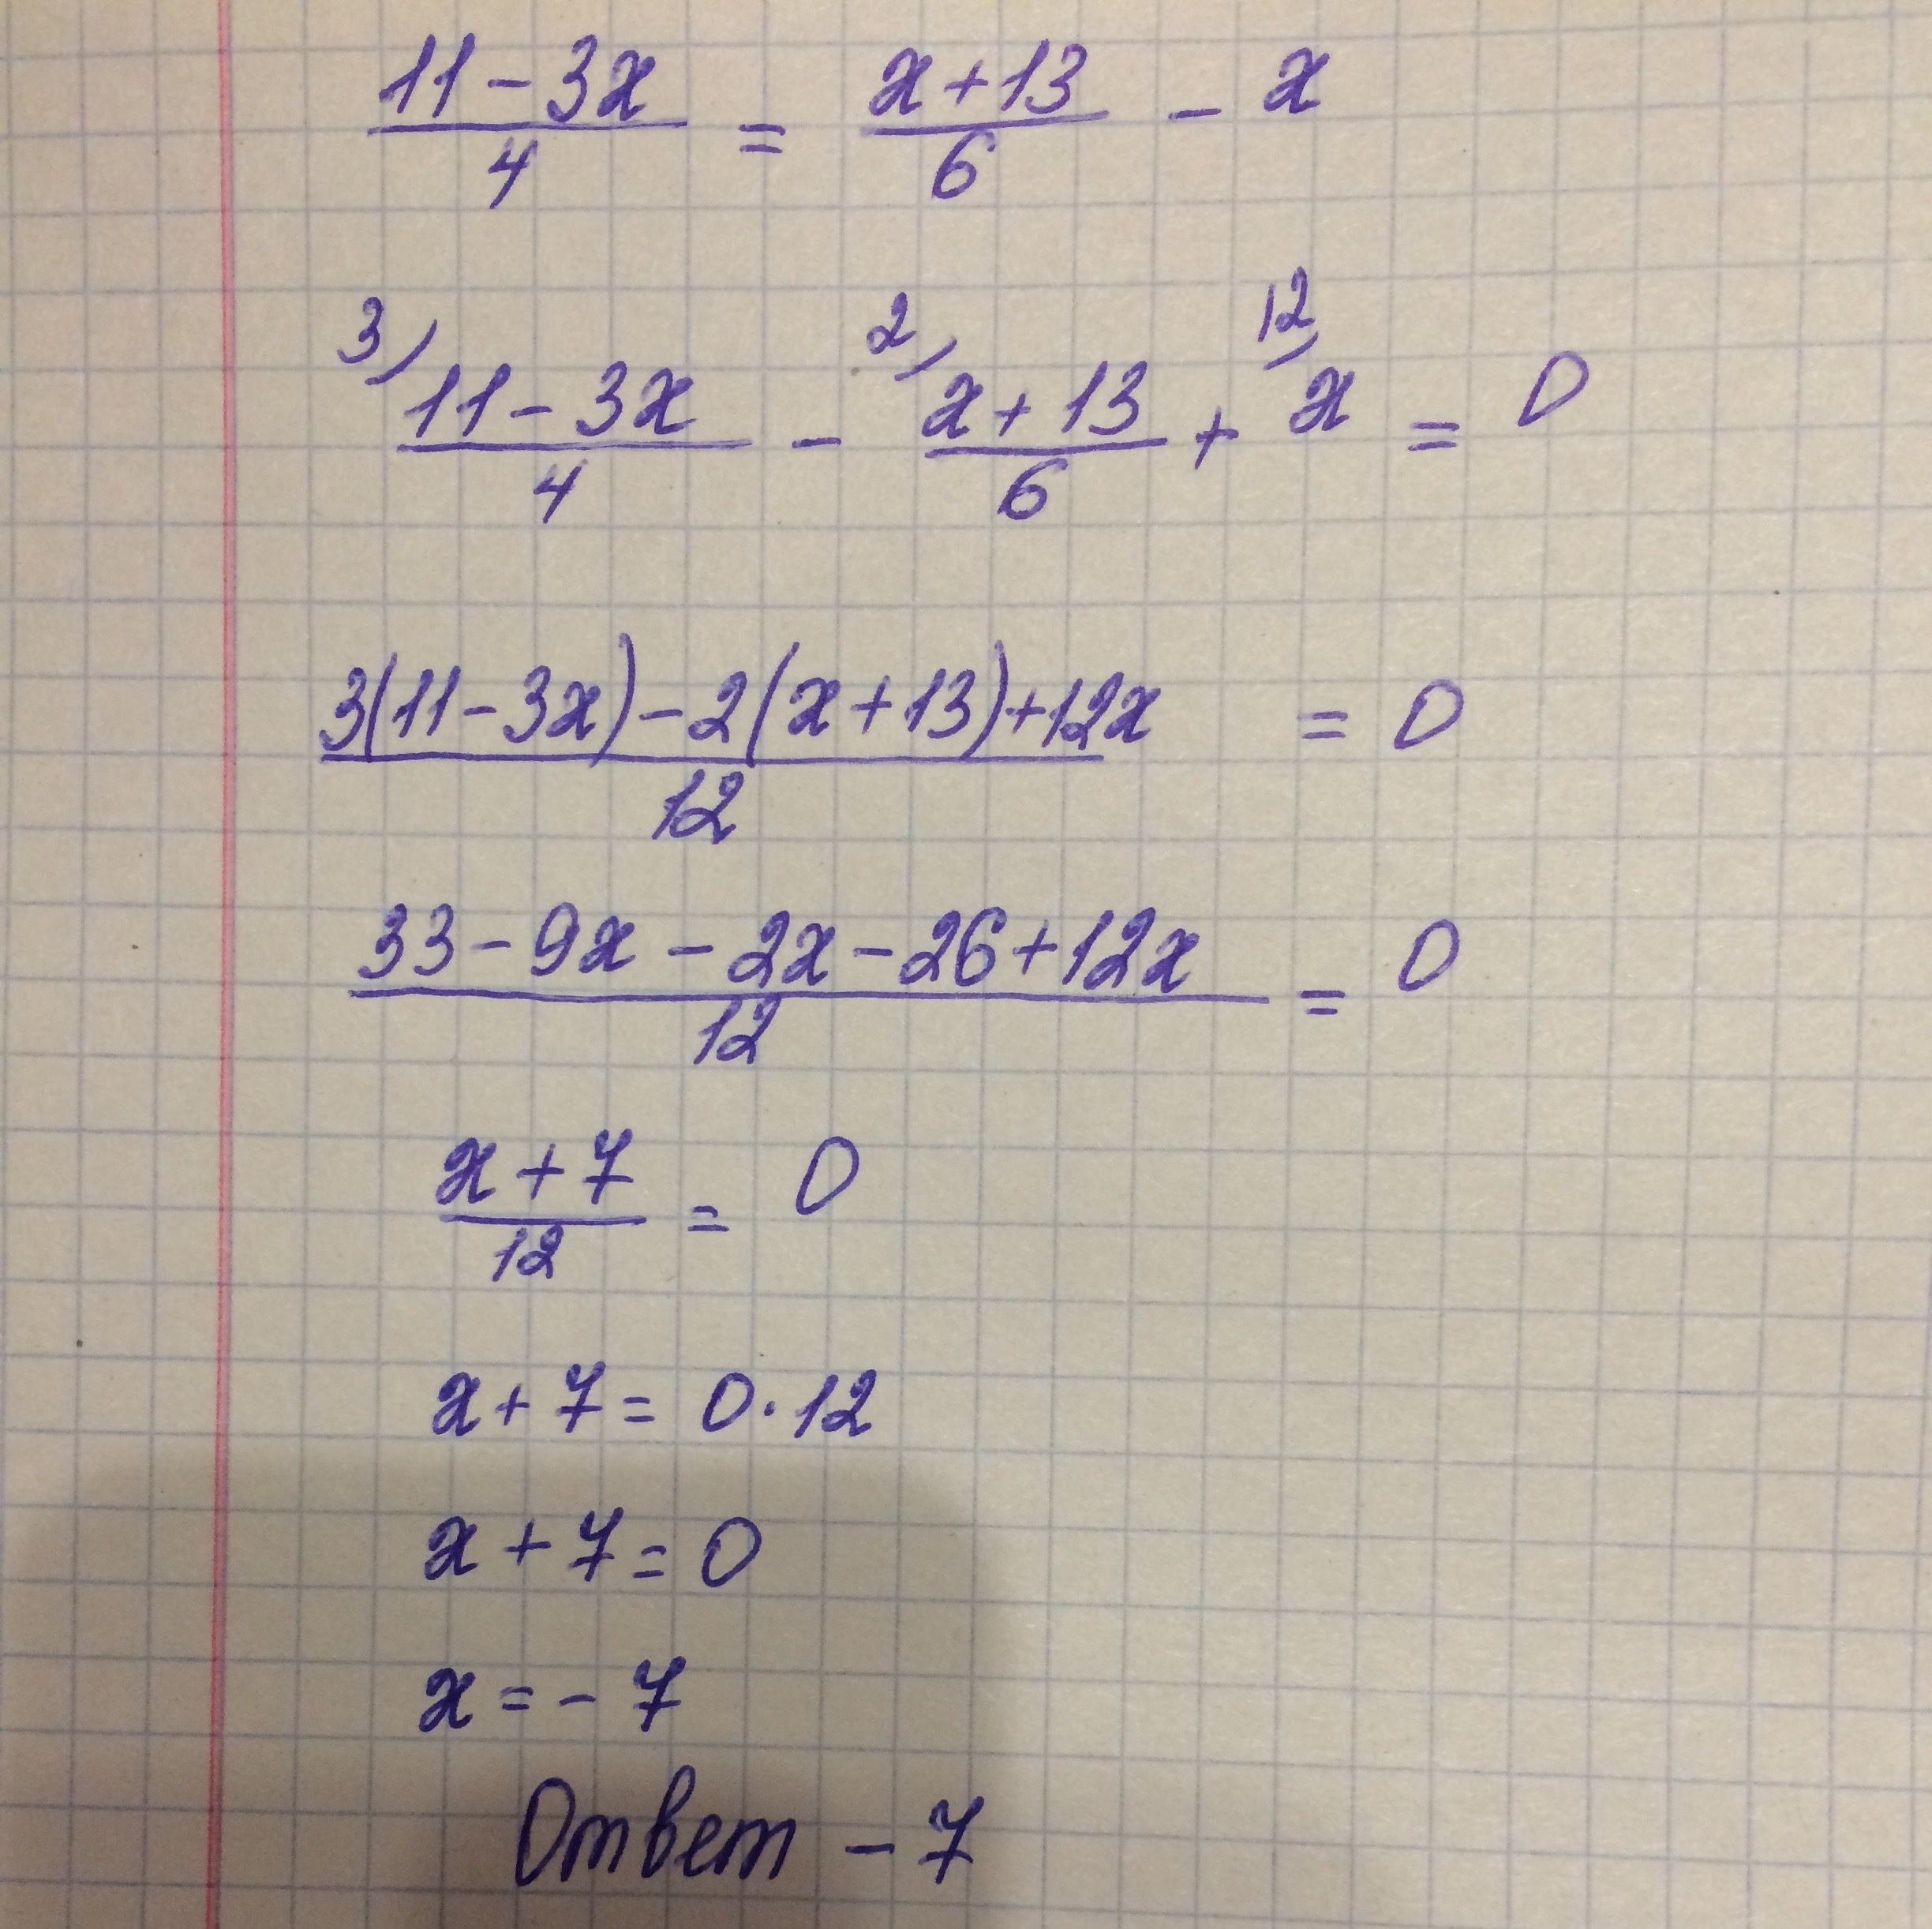 11 - 3x / 4 = x + 13 / 6 - x
3) 11 - 3x / 4 - 2) x + 13 / 6 + 12) x = 0
3(11 - 3x) - 2(x + 13) + 12x / 12 = 0
33 - 9x - 2x - 26 + 12x / 12 = 0
x + 7 / 12 = 0
x + 7 = 0 · 12
x + 7 = 0
x = - 7
Ответ - 7